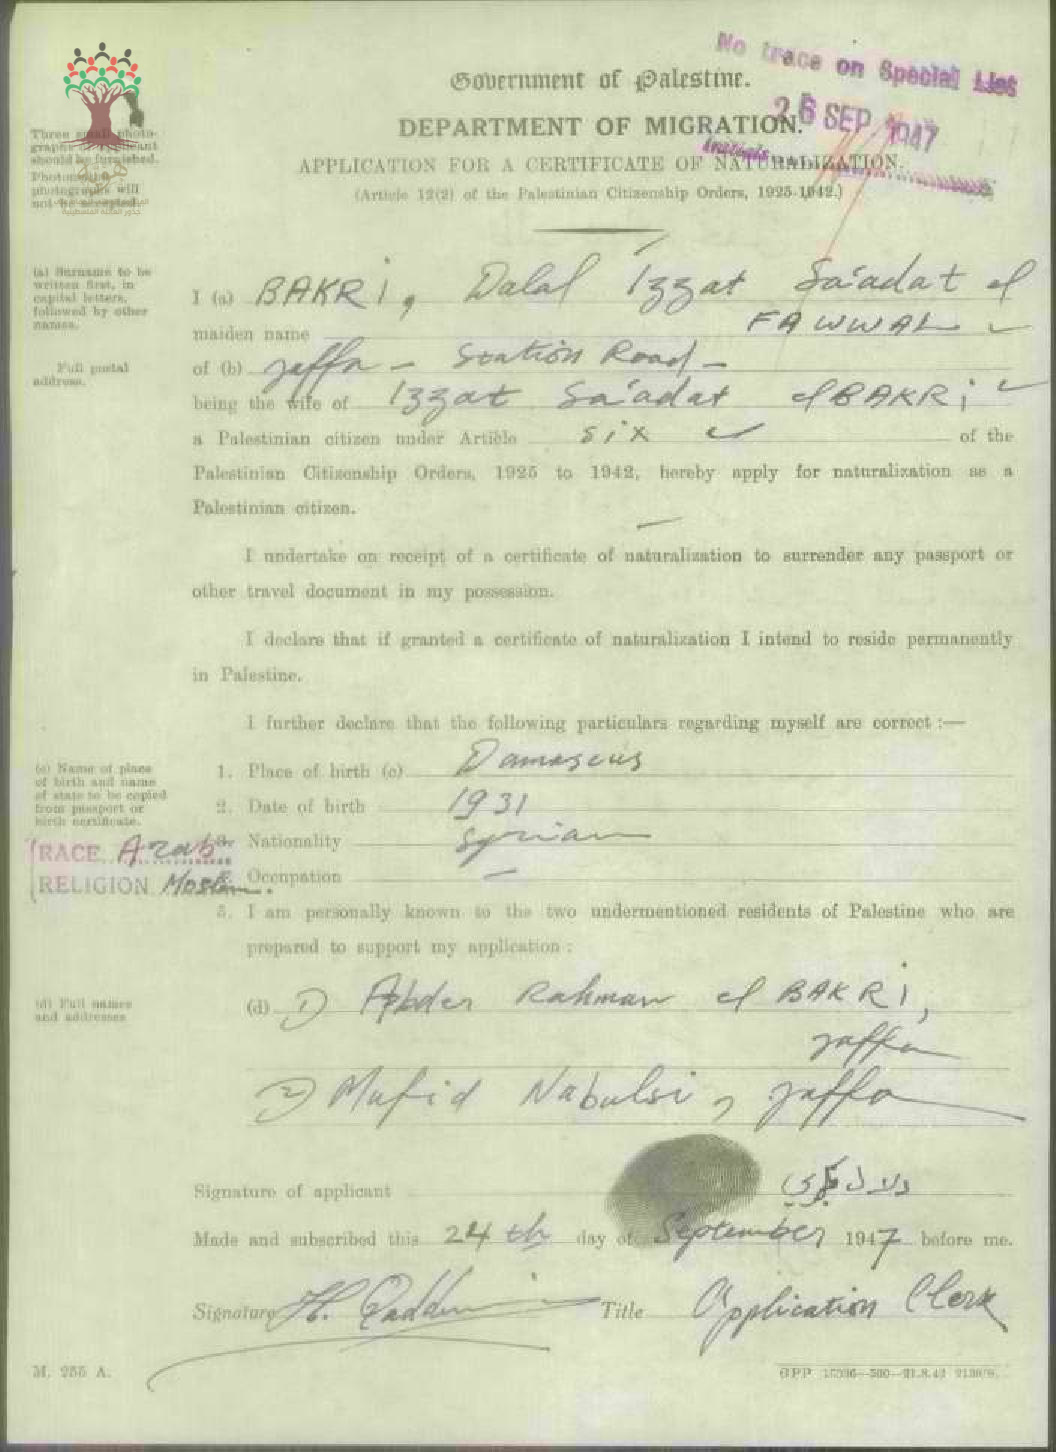 No trace on Special List
26 SEP 1947
Initials
Government of Palestine.
DEPARTMENT OF MIGRATION.
APPLICATION FOR A CERTIFICATE OF NATURALIZATION.
(Article 12(2) of the Palestinian Citizenship Orders, 1925-1942.)
Three small photo-
graphs of applicant
should be furnished.
photographs will
not be accepted.
(a) Surname to be
written first, in
capital letters,
followed by other
names.
I (a) BAKRI, Dalal Izzat Sa'adat el
maiden name FAWWAL
Full postal
address.
of (b) Jaffa - Station Road -
being the wife of Izzat Sa'adat el BAKRI
a Palestinian citizen under Article six of the
Palestinian Citizenship Orders, 1925 to 1942, hereby apply for naturalization as a
Palestinian citizen.
I undertake on receipt of a certificate of naturalization to surrender any passport or
other travel document in my possession.
I declare that if granted a certificate of naturalization I intend to reside permanently
in Palestine.
I further declare that the following particulars regarding myself are correct :—
(c) Name of place
of birth and name
of state to be copied
from passport or
birth certificate.
1. Place of birth (c) Damascus
2. Date of birth 1931
3. Nationality Syrian
RACE Arab
4. Occupation —
RELIGION Moslem.
5. I am personally known to the two undermentioned residents of Palestine who are
prepared to support my application :
(d) Full names
and addresses
(d) 1) Abder Rahman el BAKRI,
Jaffa
2) Mufid Nabulsi, Jaffa
Signature of applicant دلال بكري
Made and subscribed this 24th day of September 1947 before me.
Signature H. Title Application Clerk
M. 255 A.
GPP